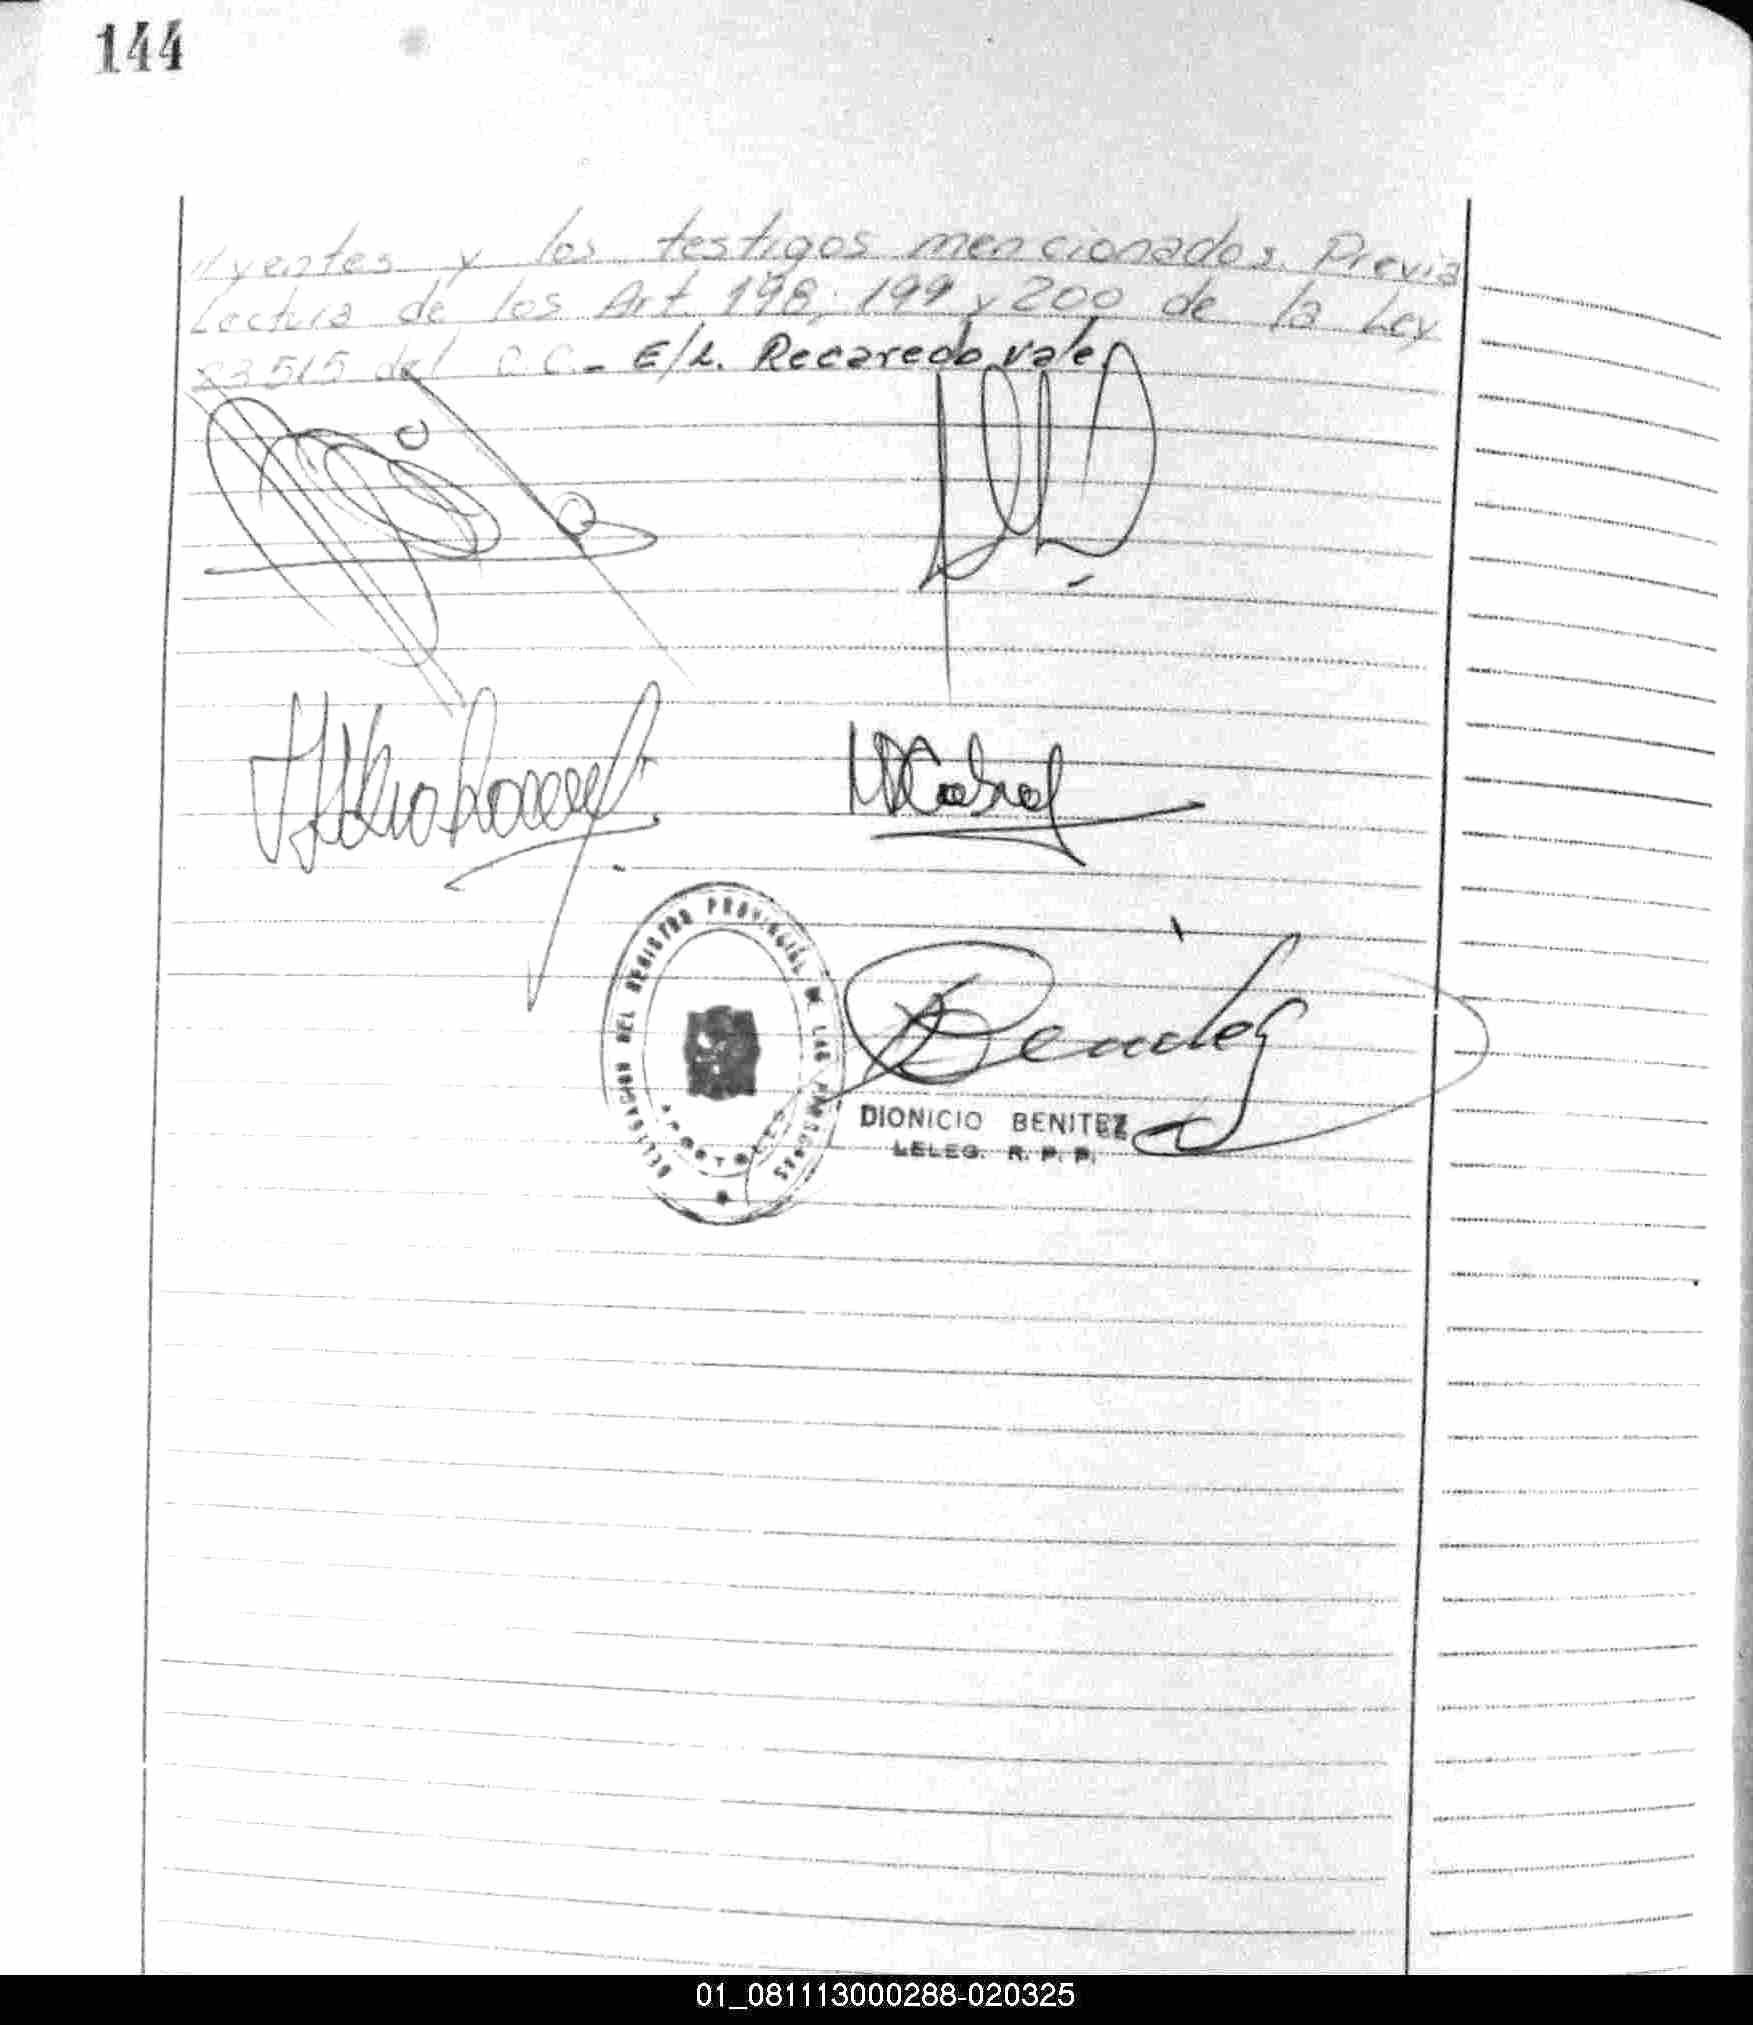 144
//yentes y los testigos mencionados. Previa
Lectura de los Art. 198, 199 y 200 de la Ley
23515 del C.C.- E/L. Recaredo, vale
DELEGACION DEL REGISTRO PROVINCIAL DE LAS PERSONAS
APOSTOLES
DIONICIO BENITEZ
DELEG. R. P. P.
01_081113000288-020325